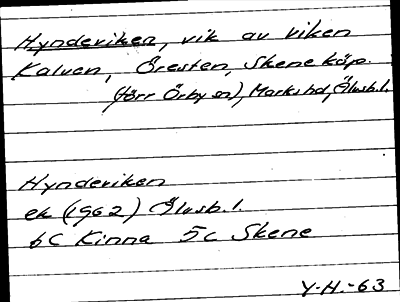 Hynderviken, vik av viken
Kalven, Öresten, Skene köp.
(förr Örby sn), Marks hd, Älvsb.l.
Hynderviken
ek (1962) Älvsb.l.
6C Kinna 5c Skene
Y.H.-63